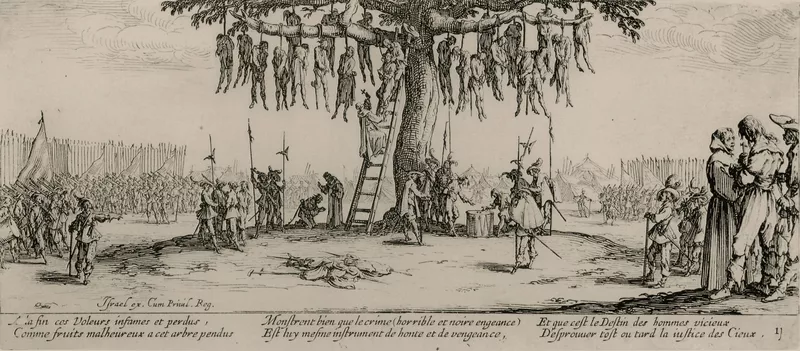 Israel ex. Cum Priuil. Reg.
A la fin ces Voleurs infames et perdus,
Comme fruits malheureux a cet arbre pendus
Monstrent bien que le crime (horrible et noire engeance)
Est luy mesme instrument de honte et de vengeance,
Et que cest le Destin des hommes vicieux
D'esprouuer tost ou tard la iustice des Cieux.